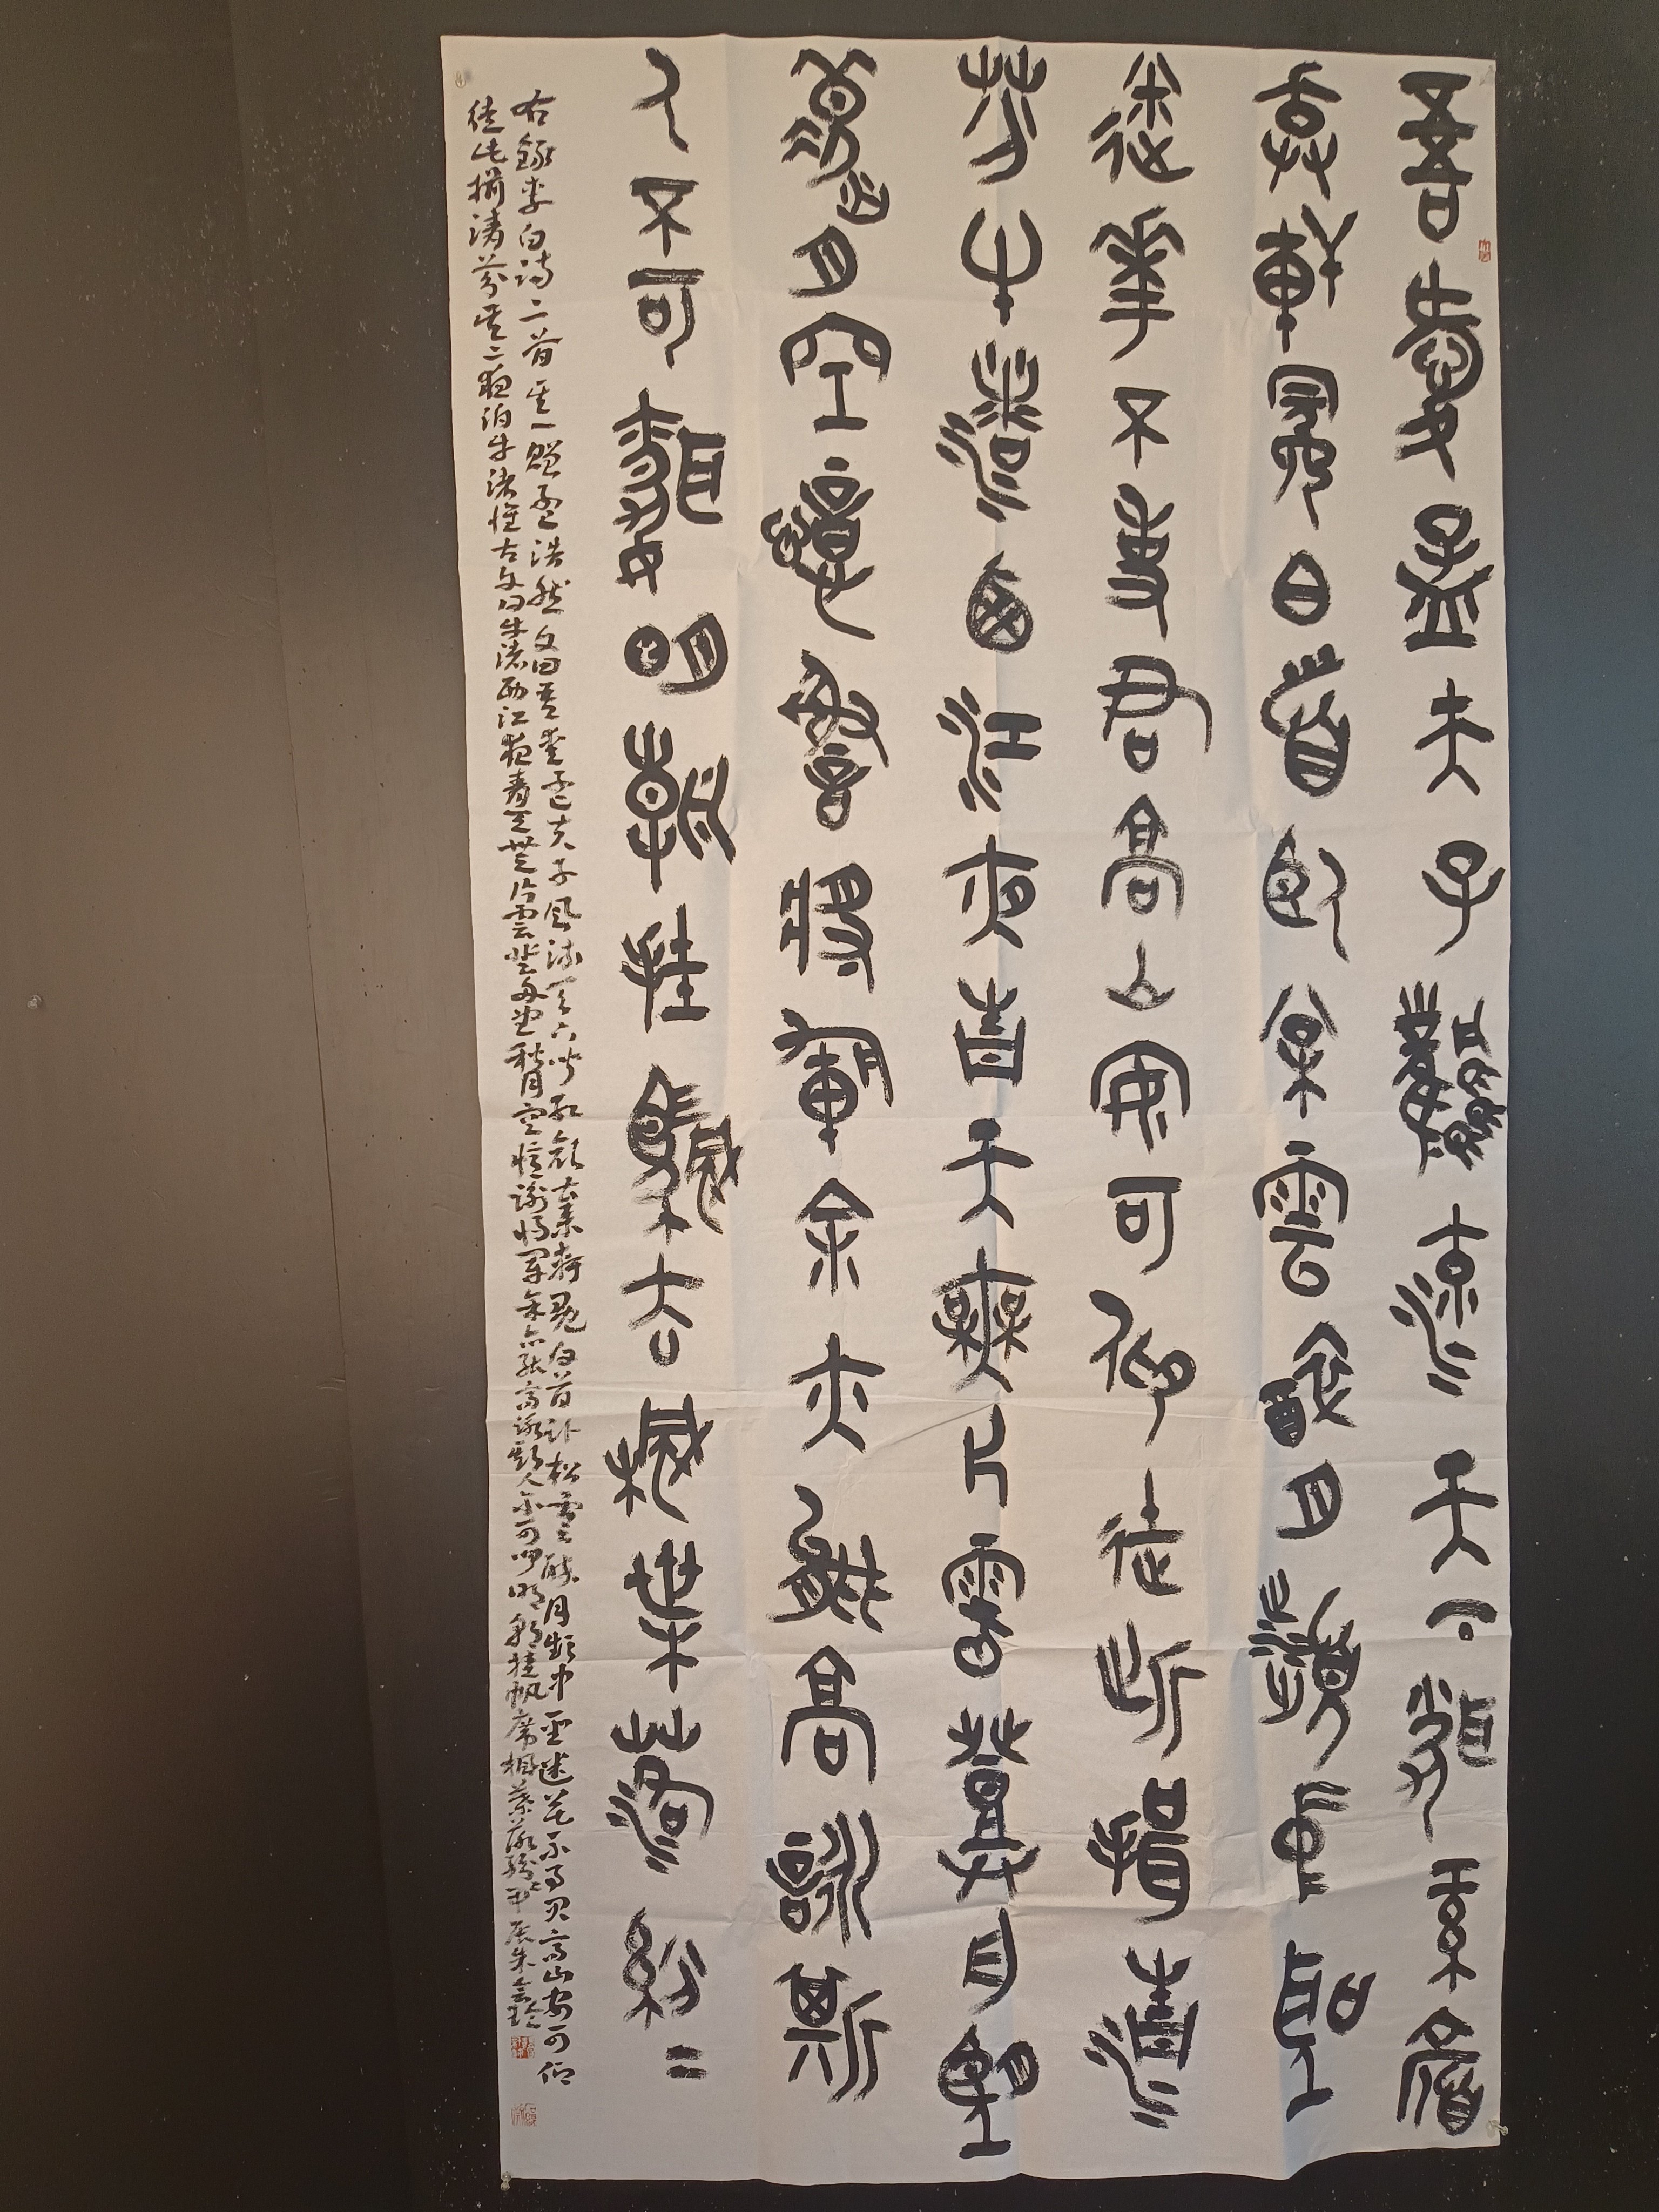 吾愛孟夫子風流天下聞紅顏
棄軒冕白首臥松雲醉月頻中聖
迷花不事君高山安可仰徒此揖清
芬牛渚西江夜青天無片雲登舟望
秋月空憶謝將軍余亦能高詠斯
人不可聞明朝挂帆席楓葉落紛〻
右錄李白詩二首其一贈孟浩然文曰吾愛孟夫子風流天下聞紅顏棄軒冕白首臥松雲醉月頻中聖迷花不事君高山安可仰
徒此揖清芬其二夜泊牛渚懷古文曰牛渚西江夜青天無片雲登舟望秋月空憶謝將軍余亦能高詠斯人不可聞明朝挂帆席楓葉落紛〻甲辰朱